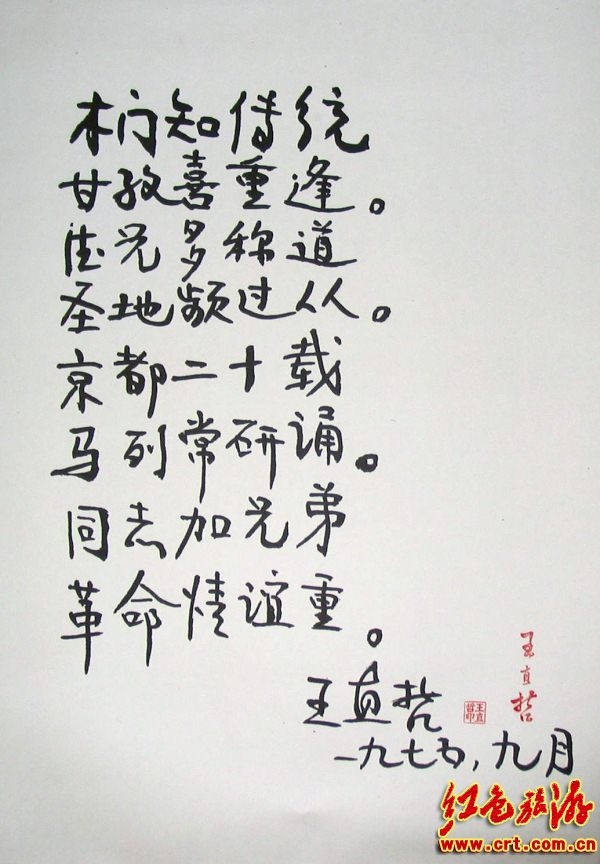 木门知传统
甘孜喜重逢。
德兄多称道
圣地频过从。
京都二十载
马列常研诵。
同志加兄弟
革命情谊重。
王直哲
王直哲
王直哲印
一九七五,九月
红色旅游
www.crt.com.cn